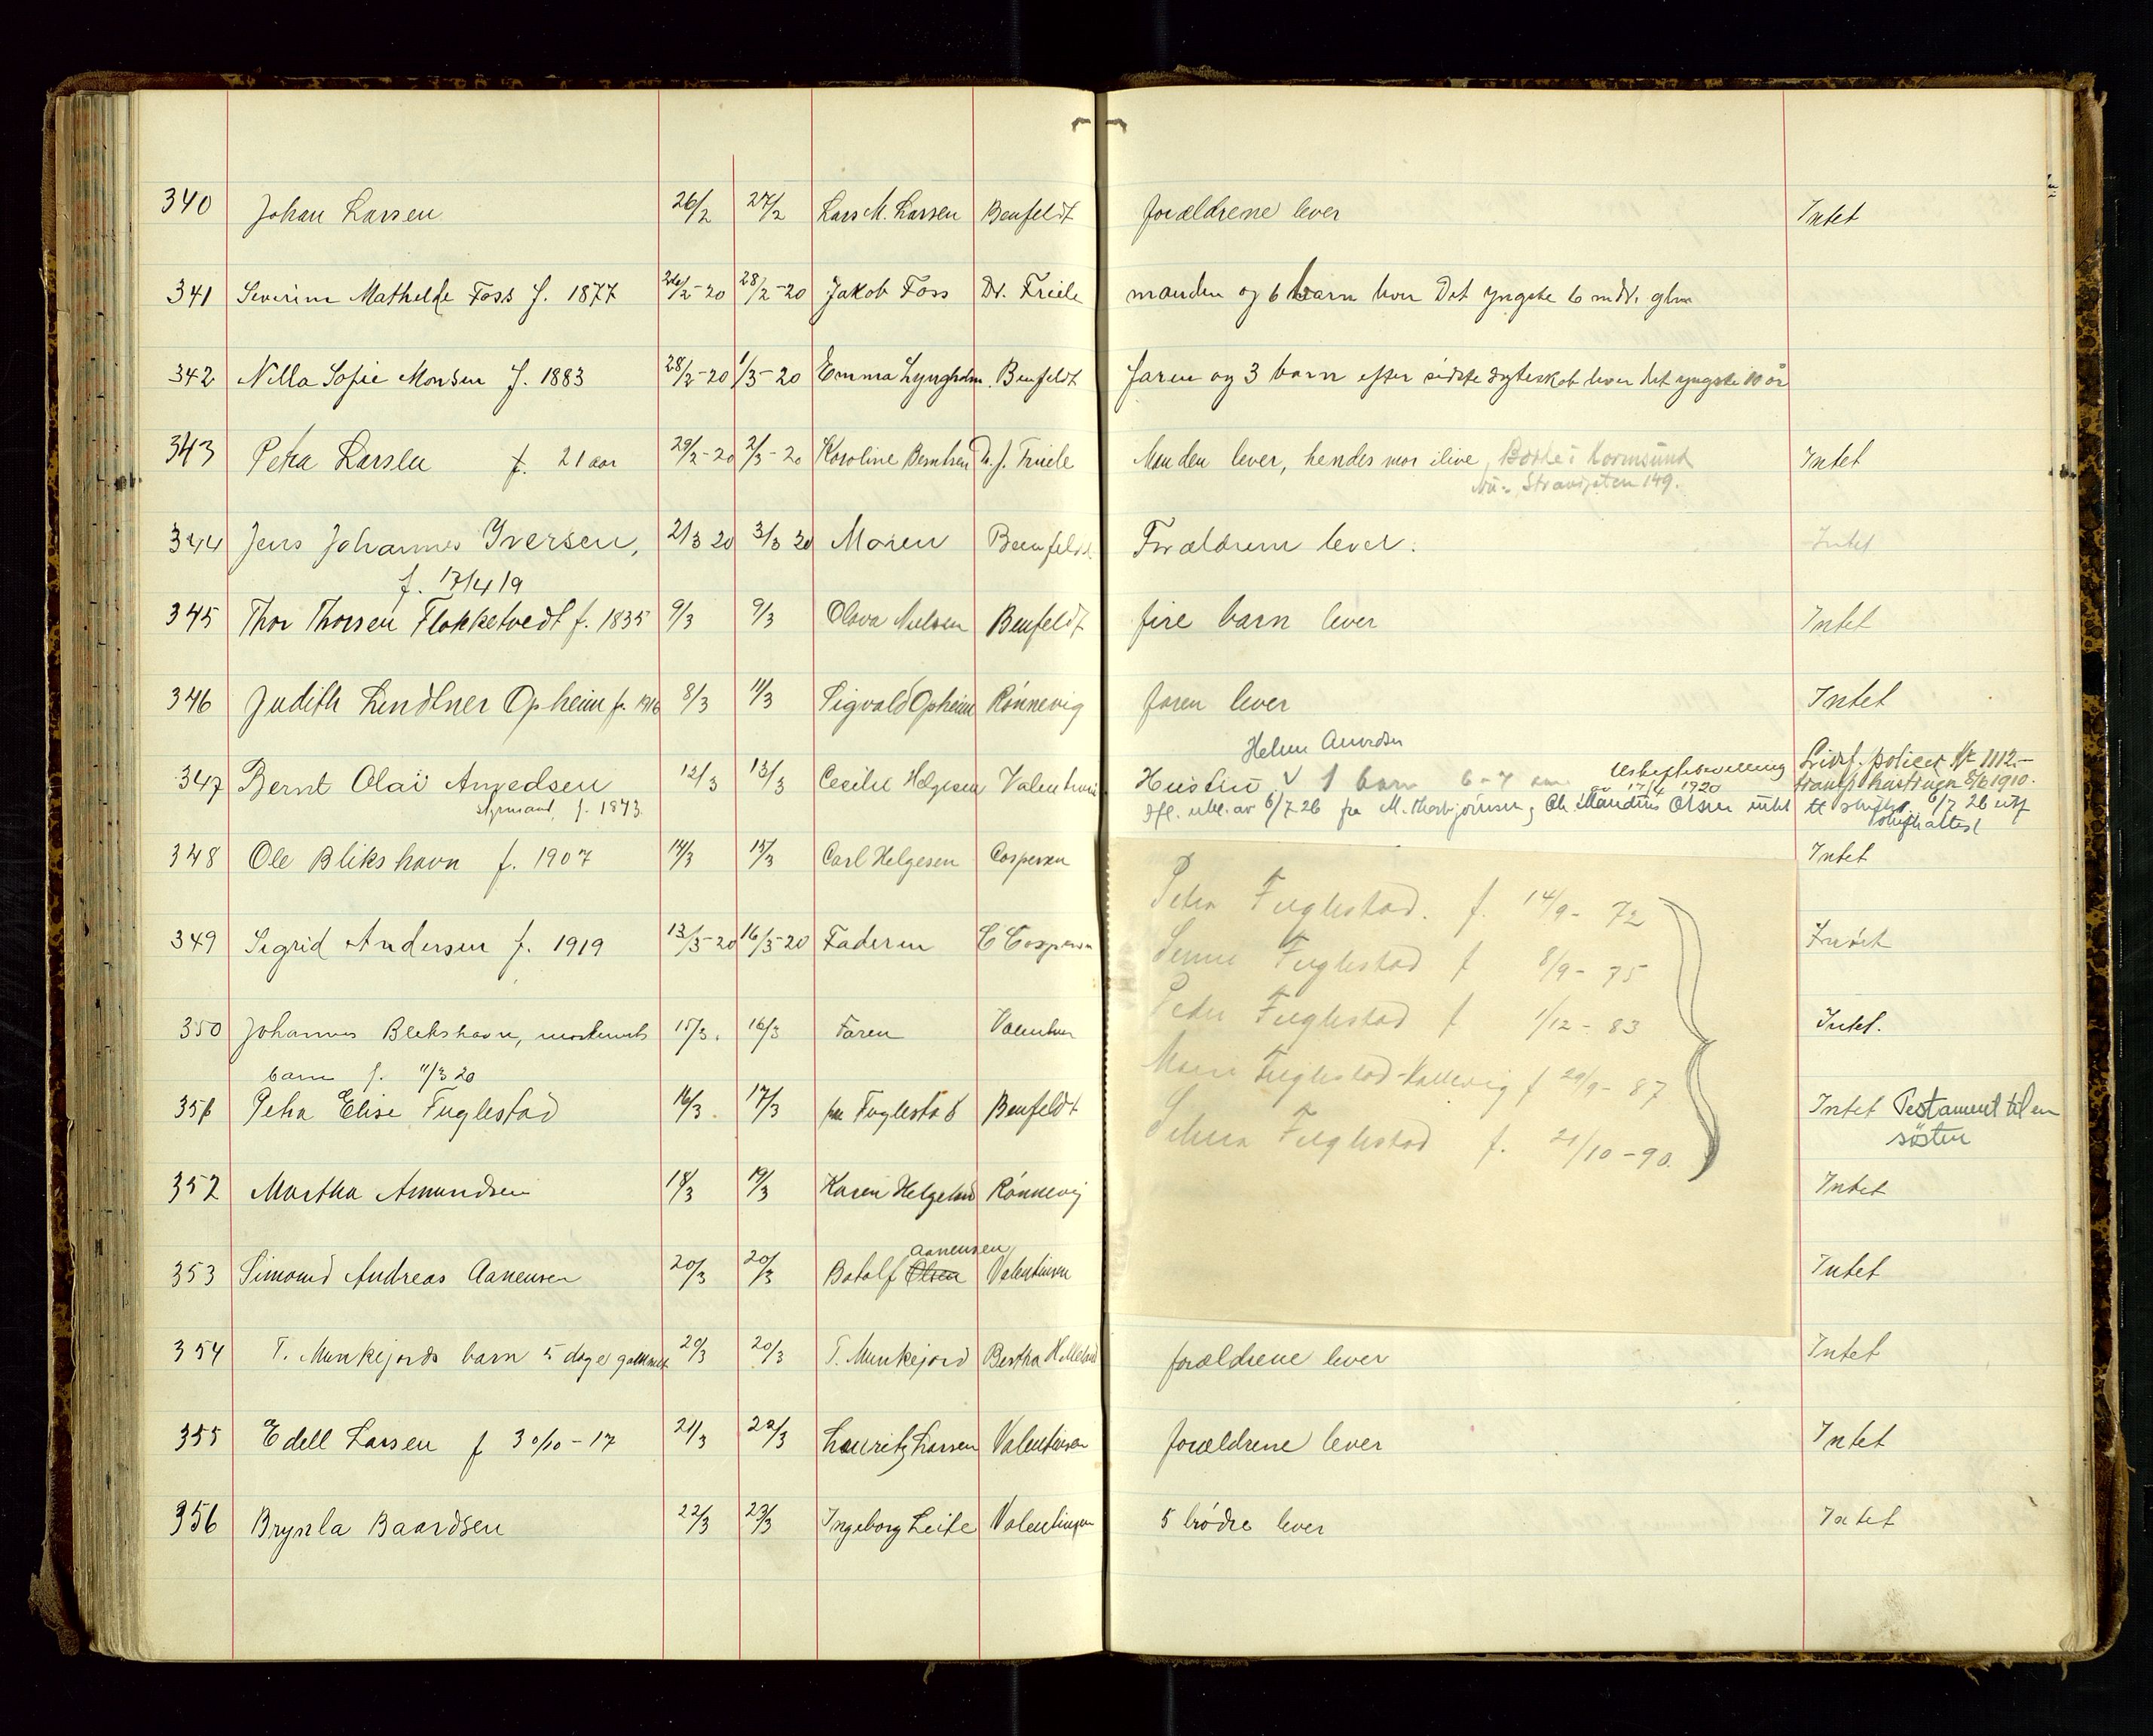 340 Johan Larsen 26/2 27/2 Lars M. Larsen Benfeldt forældrene lever Intet
341 Severine Mathilde Foss f. 1877 26/2-20 28/2-20 Jakob Foss Dr. Friele manden og 6 barn lever Det yngste 6 mdr. glm
342 Nilla Sofie Monsen f. 1883 28/2-20 1/3-20 Emma Lyngholm Benfeldt faren og 3 barn efter sidste egteskab lever det yngste 10 år
343 Petra Larsen f. 21 aar 29/2-20 2/3-20 Karoline Berntsen Dr. J. Friele Manden lever, hendes mor ilive, Intet
Strandgaten 149.
344 Jens Johannes Iversen, 2/3 20 3/3 20 Moren Benfeldt Forældrene lever. Intet
f. 17/4 19
345 Thor Thorsen Flokketvedt f. 1835 9/3 9/3 Olava Nielsen Benfeldt fire barn lever Intet
346 Judith Lindtner Opheim f. 1916 8/3 11/3 Sigvald Opheim Rønnevig faren lever Intet
Helene Anvedsen
347 Bernt Olai Anvedsen 12/3 13/3 Cecilie Helgesen Valentinsen Hustru 1 barn 6-7 Uskiftebevilling Livsf. police 1112.-
av 17/4 1920 1910.
styrmand, f. 1873. av 6/7-26 fra M. Thorbjörnsen, Olsen 6/7 26
skifteattest
348 Ole Blikshavn f. 1907 14/3 15/3 Carl Helgesen Caspersen Intet
Petra Fuglestad. f. 14/9- 72
349 Sigrid Andersen f. 1919 13/3-20 16/3-20 Faderen C Caspersen Intet
Fuglestad f 8/9- 75
350 Johannes Blikshavn, 15/3. 16/3 Faren Valentinsen Intet.
Peder Fuglestad f 1/12- 83
barn f. 11/3 20
Fuglestad f 29/9- 87
351 Petra Elise Fuglestad 16/3. 17/3 Fuglestad Benfeldt Intet Testament til en
søster
Fuglestad f. 21/10-90.
352 Martha Amundsen 18/3 19/3 Karen Helgeland Rønnevig Intet
Aanensen
353 Simond Andreas Aanensen 20/3 20/3 Botolf Olsen Valentinsen Intet
354 T. Munkejords barn 5 dage gammelt 20/3 20/3 T. Munkejord Bertha forældrene lever Intet
355 Edell Larsen f 30/10-17 21/3 22/3 Lauritz Larsen Valentinsen forældrene lever Intet
356 Brynla Baardsen 22/3 23/3 Ingeborg Leite Valentinsen 5 brødre lever Intet